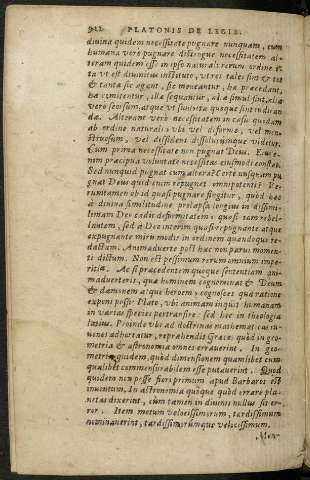 912 PLATONIS DE LEGIB.
divina quidem necessitate pugnare nunquam, cum
humana verò pugnare distingue necessitatem al-
teram quidem esse in ipso naturali rerum ordine
ta ut est divinitus instituto, ut res tales sint &
& tanta sic agant, sic moveantur, hæ præcedant,
hæ comitentur, illæ sequantur, aliæ simul sint, aliæ
verò seorsum, atque ut his unita quoque sint
da. Alteram verò necessitatem in casu quodam
ab ordine naturali: ubi vel deforme, vel mon-
struosum, vel dissidens dissolutumque videtur.
Cum prima necessitate non pugnat Deus.
nim præcipua voluntate necessitas eiusmodi constat.
Sed nunquid pugnat cum altera? Certè nusquam pu-
gnat Deus quid enim repugnet omnipotenti? Ve-
runtamen ob id quasi pugnare fingitur, quòd hæc
à divina similitudine prolapsa longius in dissimi-
limam Deo cadit deformitatem: quasi iam rebel-
lantem, sed à Deo interim quasi repugnante atque
expugnante miris modis in ordinem quandoque re-
dactam. Animadverte post hæc non parvi momen-
ti dictum. Non est pessimum rerum omnium impe-
ritia. Ac si præcedentem quoque sententiam ani-
madverteris, qua hominem cognominat & Deum
& dæmonem atque heroem: cognosces qua ratione
exponi possit Plato, ubi animam inquit humanam
in varias species pertransire. sed hoc in theologia
latius. Proinde ubi ad doctrinas mathematicas iu-
venes adhortatur, reprehendit Græcos quòd in geo-
metria & astronomia omnes erraverint. In geo-
metria quidem, quòd dimensionem quamlibet cum
qualibet commensurabilem esse putaverint. Quod
quidem non posse fieri primum apud Barbaros est
inventum. In astronomia quòque quòd errare pla-
netas dixerint, cum tamen in divinis nullus sit er-
ror. Item motum velocissimorum, tardissimum
nominaverint, tardissimorumque velocissimum.